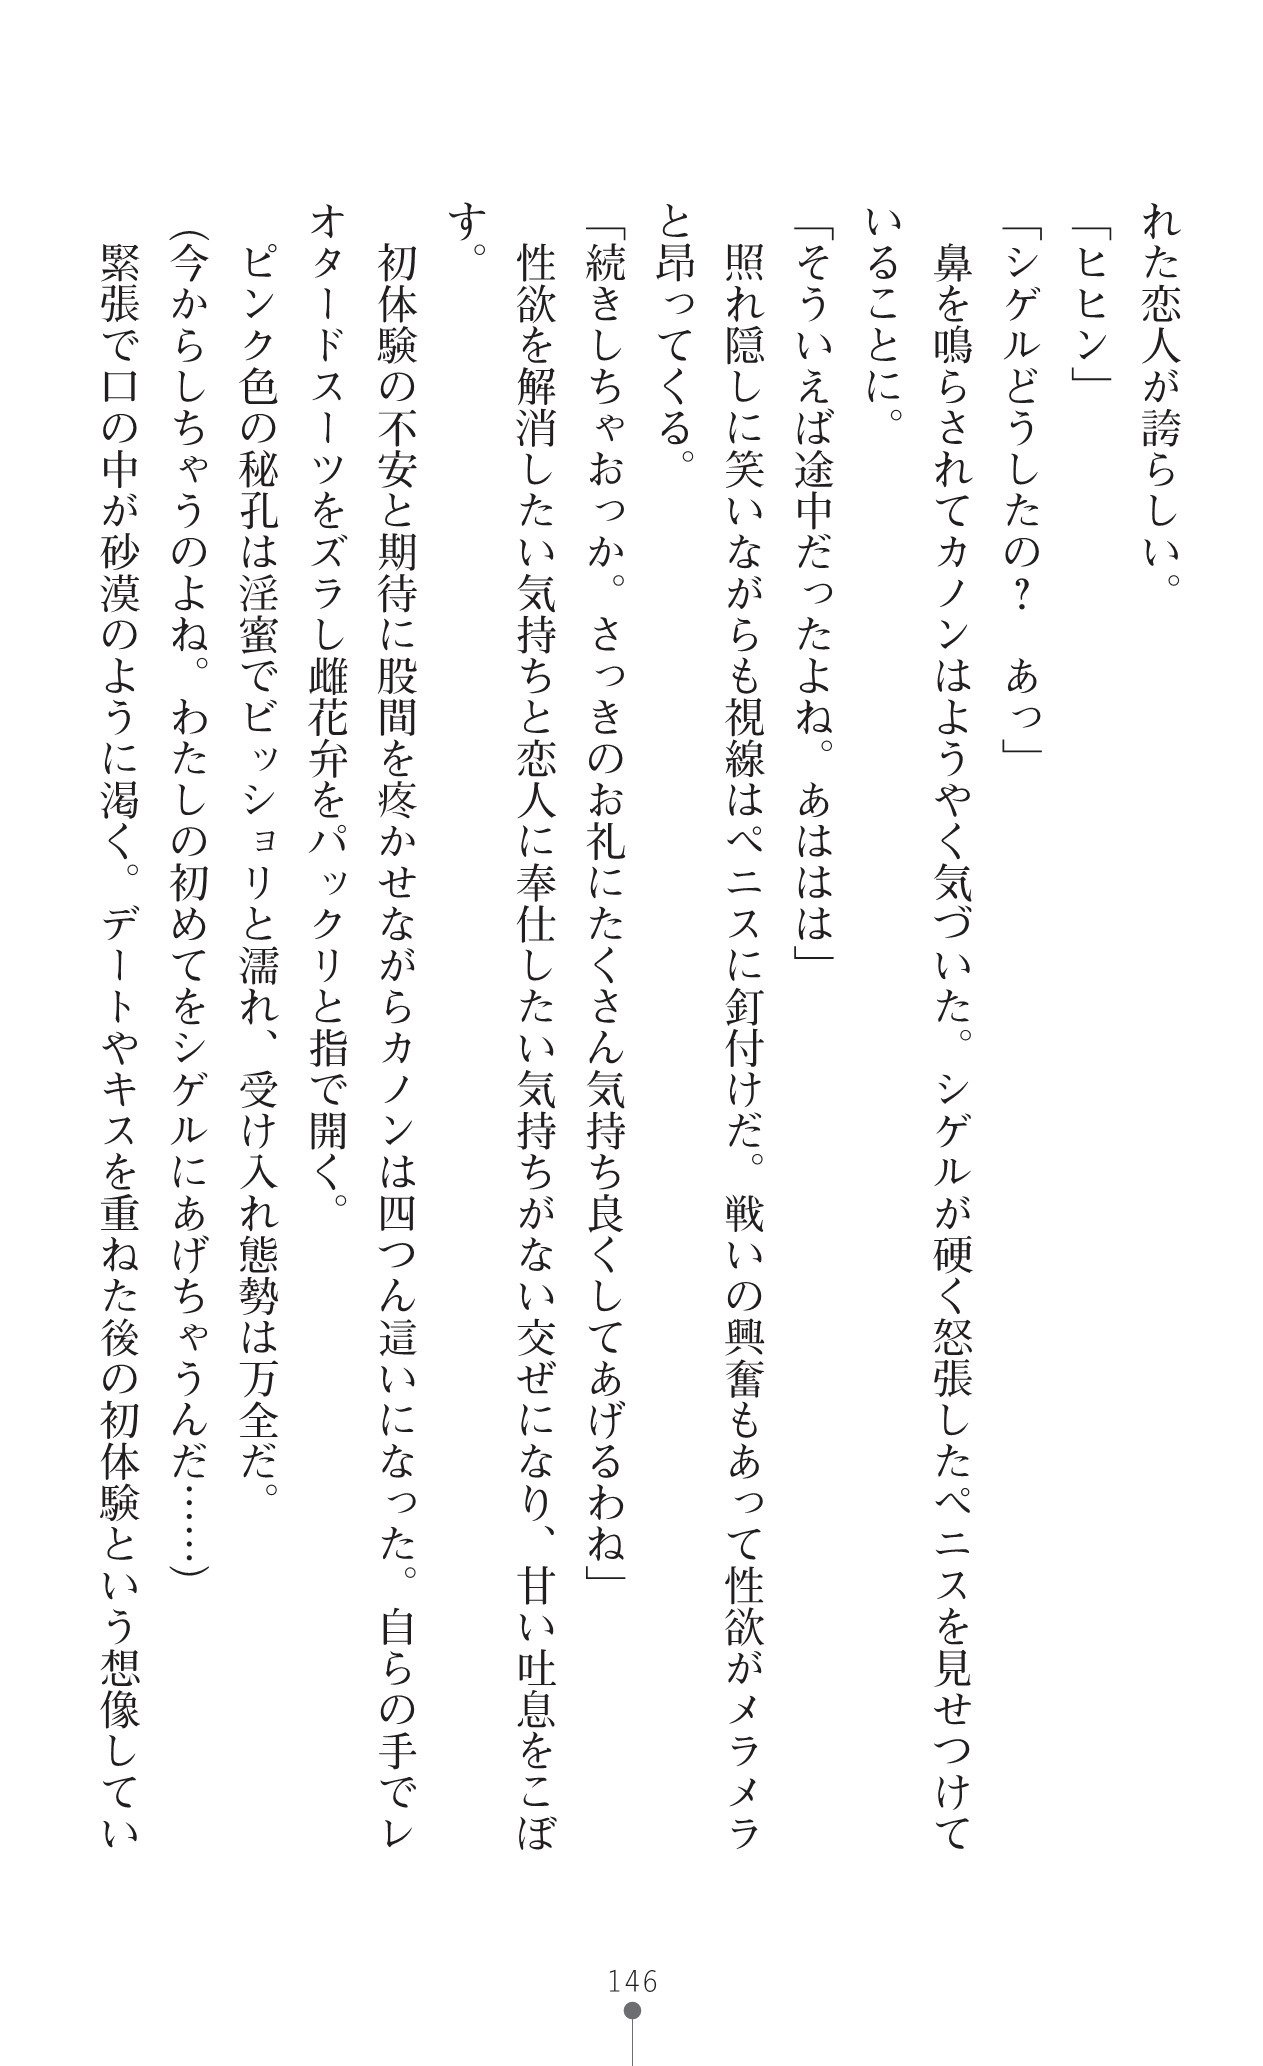 れた恋人が誇らしい。
「ヒヒン」
「シゲルどうしたの？　あっ」
　鼻を鳴らされてカノンはようやく気づいた。シゲルが硬く怒張したペニスを見せつけて
いることに。
「そういえば途中だったよね。あははは」
　照れ隠しに笑いながらも視線はペニスに釘付けだ。戦いの興奮もあって性欲がメラメラ
と昂ってくる。
「続きしちゃおっか。さっきのお礼にたくさん気持ち良くしてあげるわね」
　性欲を解消したい気持ちと恋人に奉仕したい気持ちがない交ぜになり、甘い吐息をこぼ
す。
　初体験の不安と期待に股間を疼かせながらカノンは四つん這いになった。自らの手でレ
オタードスーツをズラし雌花弁をパックリと指で開く。
　ピンク色の秘孔は淫蜜でビッショリと濡れ、受け入れ態勢は万全だ。
（今からしちゃうのよね。わたしの初めてをシゲルにあげちゃうんだ……）
　緊張で口の中が砂漠のように渇く。デートやキスを重ねた後の初体験という想像してい
146